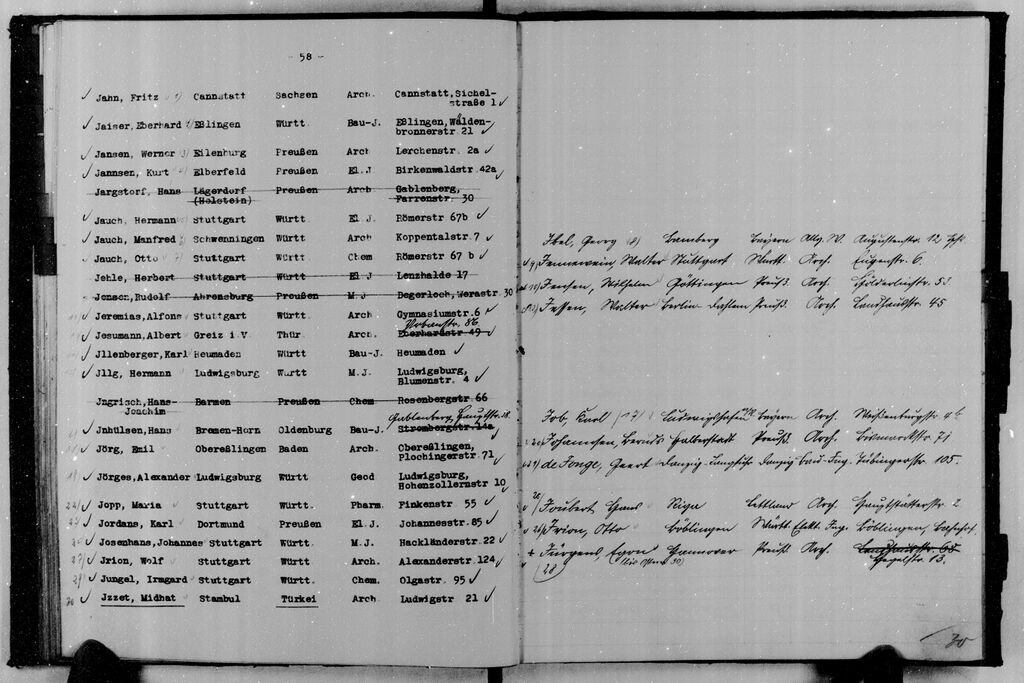 - 58 -
Jahn, Fritz Cannstatt Sachsen Arch. Cannstatt, Sichel-
straße 1
Jaiser, Eberhard Eßlingen Württ. Bau-J. Eßlingen, Wälden-
bronnerstr. 21
Jansen, Werner Eilenburg Preußen Arch Lerchenstr. 2a
Jannsen, Kurt Elberfeld Preußen El.J Birkenwaldstr. 42a
Jargstorf, Hans Lägerdorf Preußen Arch Gablenberg,
(Holstein) Farrenstr. 30
Jauch, Hermann Stuttgart Württ. El J. Römerstr 67b
Jauch, Manfred Schwenningen Württ Arch Koppentalstr. 7
Jauch, Otto Stuttgart Württ Chem Römerstr 67 b
Jehle, Herbert Stuttgart Württ El J Lenzhalde 17
Jensen, Rudolf Ahrensburg Preußen M.J Degerloch, Werastr. 30
Jeremias, Alfons Stuttgart Württ. Arch Gymnasiumstr. 6
Urbanstr. 86
Jesumann, Albert Greiz i.V Thür Arch. Eberhardstr 49
Jllenberger, Karl Heumaden Württ Bau-J. Heumaden
Jllg, Hermann Ludwigsburg Württ M.J. Ludwigsburg,
Blumenstr. 4
Jngrisch, Hans- Barmen Preußen Chem Rosenbergstr. 66
Joachim
Gablenberg, Hauptstr. 28.
Jnhülsen, Hans Bremen-Horn Oldenburg Bau-J. Strombergstr. 14a
Jörg, Emil Obereßlingen Baden Arch. Obereßlingen,
Plochingerstr. 71
Jörges, Alexander Ludwigsburg Württ Geod Ludwigsburg,
Hohenzollernstr 10
22 Jopp, Maria Stuttgart Württ Pharm. Finkenstr. 55
Jordans, Karl Dortmund Preußen El.J. Johannesstr. 85
Josenhans, Johannes Stuttgart Württ. M.J. Hackländerstr. 22
27 Jrion, Wolf Stuttgart Württ. Arch. Alexanderstr. 124
29 Jungel, Irmgard Stuttgart Württ. Chem. Olgastr. 95
30 Jzzet, Midhat Stambul Türkei Arch. Ludwigstr 21
Ibel, Georg (8) Bamberg Bayern Allg. W. Augustenstr. 12
9) Jennewein, Walter Stuttgart Württ. Arch. Eugenstr. 6.
10) Jensen, Wilhelm Göttingen Preuß. Arch. Hölderlinstr. 53
Jessen, Walter Berlin Dahlem Preuß. Arch. Landhausstr. 45
Job, Karl (17) Ludwigshafen Bayern Arch. Weißenburgstr. 4
Johannesen, Berndt Halberstadt Preuß. Arch. Bismarckstr. 71
de Jonge, Geert Danzig-Langfuhr Danzig Bau-Ing. Tübingerstr. 105.
Joubert Hans Riga Lettland Arch. Hauptstätterstr. 2
Irion, Otto Böblingen Württ. Elekt. Ing. Böblingen, Bahnhof
+ Jürgens, Egon Hannover Preuß Arch. Landhausstr. 68
(28) Hegelstr. 13.
30